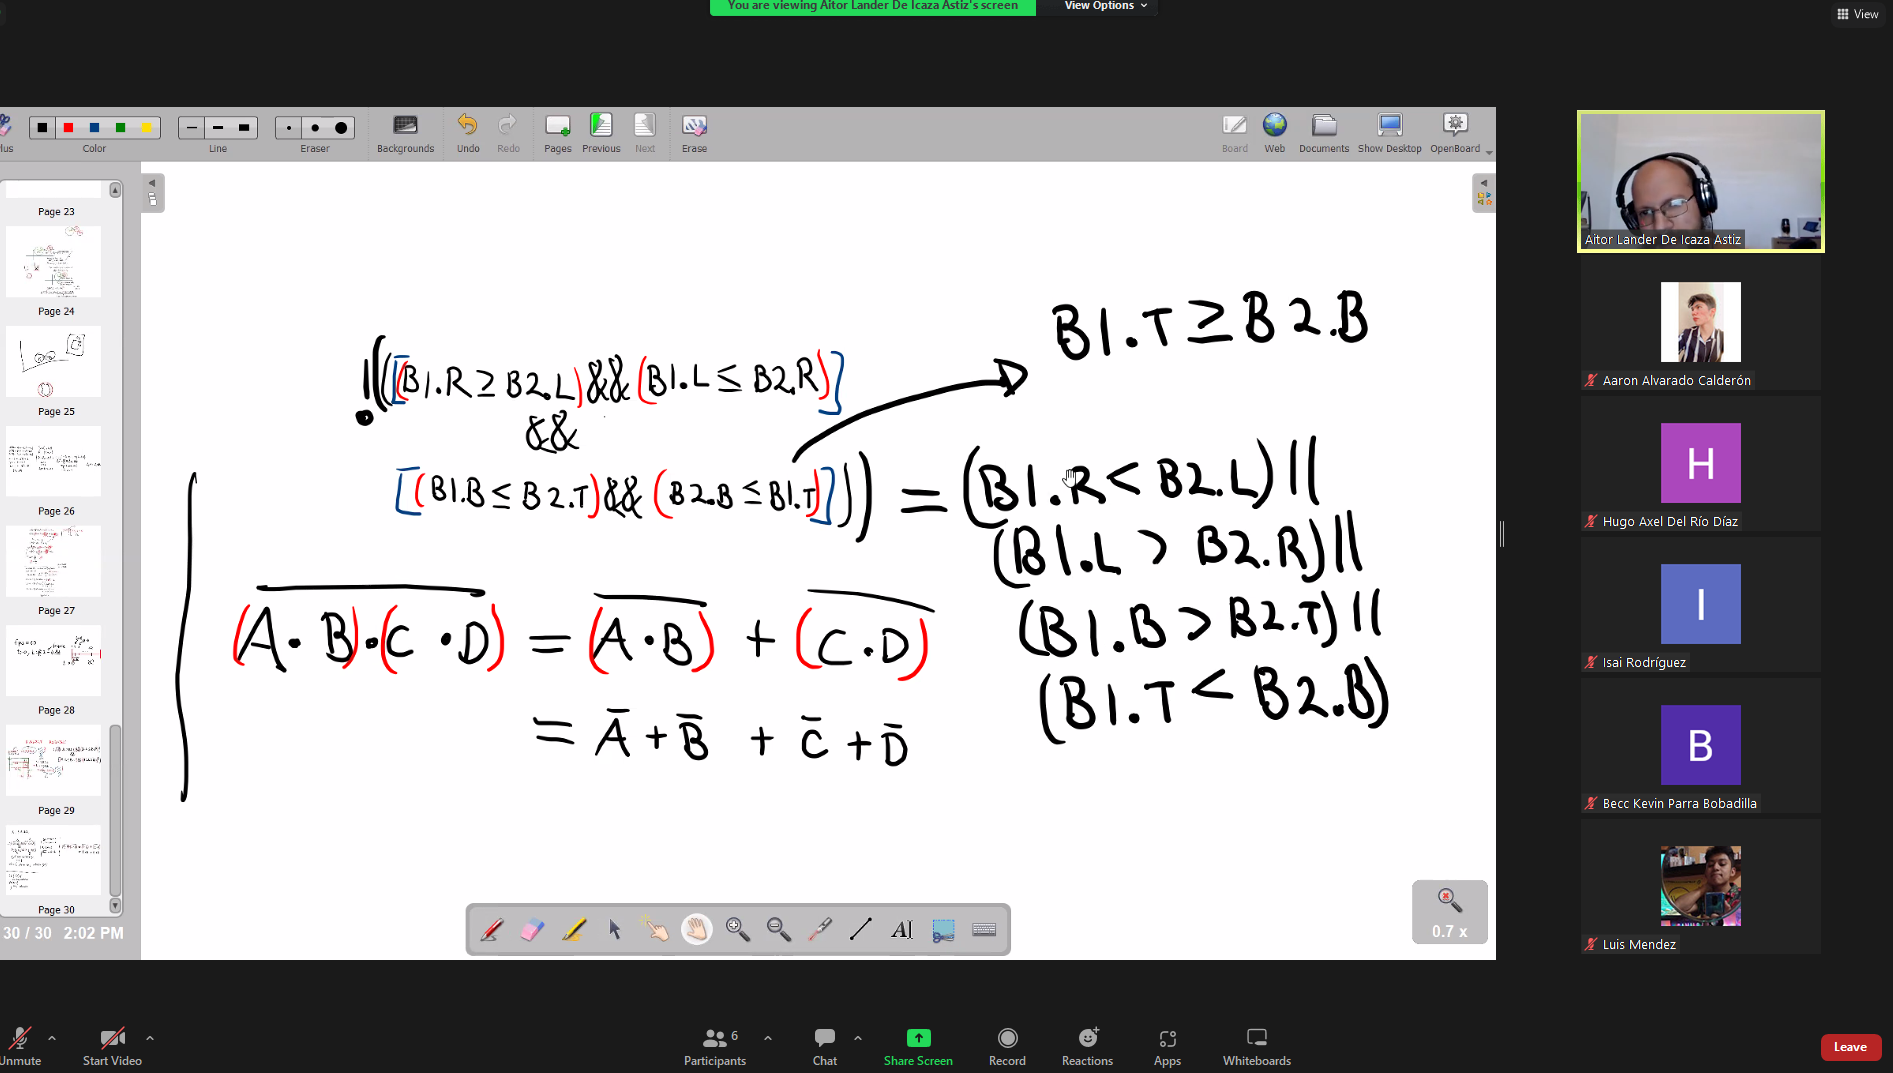 You are viewing Aitor Lander De Icaza Astiz's screen
View Options
View
Color
Line
Eraser
Backgrounds
Undo
Redo
Pages
Previous
Next
Erase
Board
Web
Documents
Show Desktop
OpenBoard
Page 23
Page 24
Page 25
Page 26
Page 27
Page 28
Page 29
Page 30
30 / 30 2:02 PM
B1.T ≥ B2.B
!(([(B1.R ≥ B2.L) && (B1.L ≤ B2.R)]
&&
[(B1.B ≤ B2.T) && (B2.B ≤ B1.T)])) = (B1.R < B2.L) ||
(B1.L > B2.R) ||
(B1.B > B2.T) ||
(B1.T < B2.B)
(A · B) · (C · D) = (A · B) + (C · D)
= Ā + B̄ + C̄ + D̄
0.7 x
Aitor Lander De Icaza Astiz
Aaron Alvarado Calderón
H
Hugo Axel Del Río Díaz
I
Isai Rodríguez
B
Becc Kevin Parra Bobadilla
Luis Mendez
Unmute
Start Video
Participants
6
Chat
Share Screen
Record
Reactions
Apps
Whiteboards
Leave